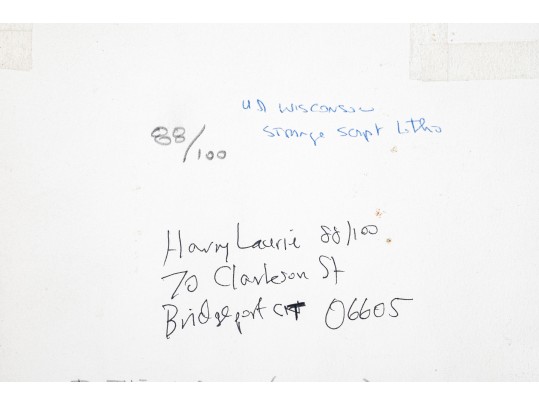 UA WISCONSIN
88/100
Strange Script Litho
Harry Laurie 88/100
70 Clarkson St
Bridgeport CT 06605